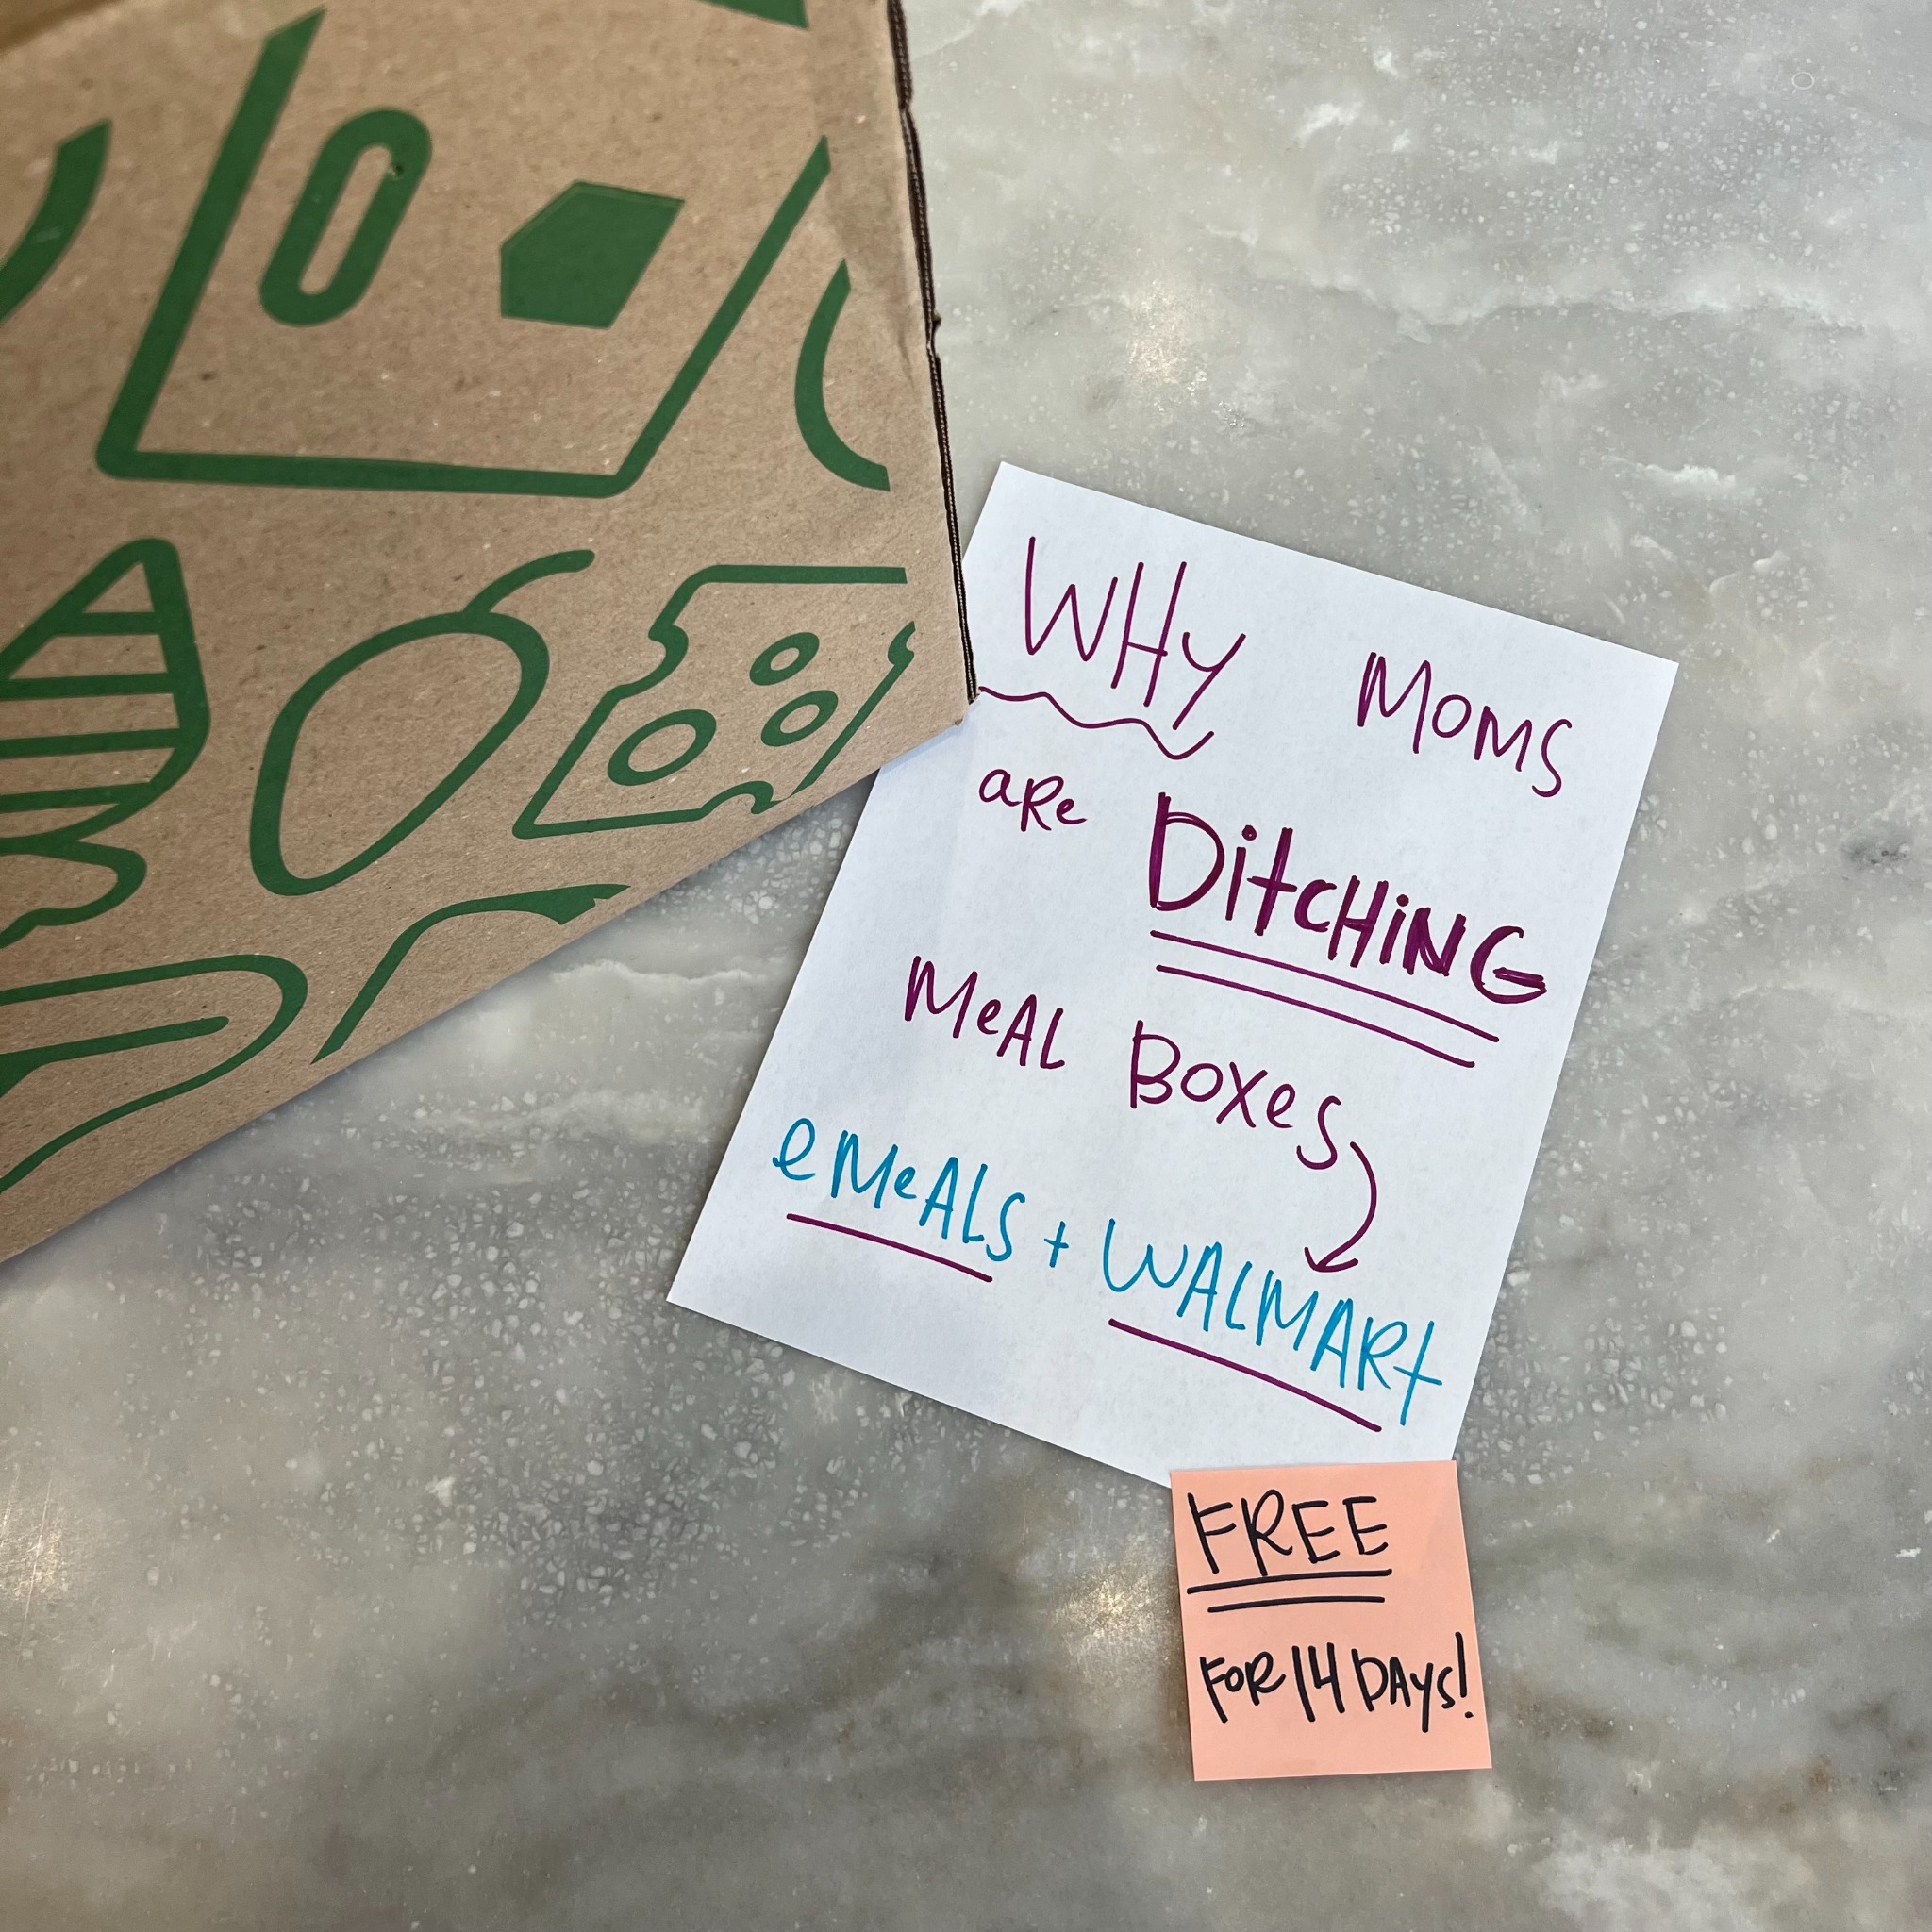 WHY MOMS
aRe DitCHiNG
MeAL BOXeS
eMeALS + WALMARt
FREE
FOR 14 DAYS!